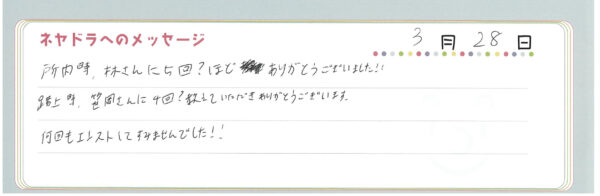 ネヤドラへのメッセージ
3月28日
所内時、林さんに5回?ほど ありがとうございました!!
路上時、笠岡さんに4回?教えていただきありがとうございます。
何回もエンストしてすみませんでした!!